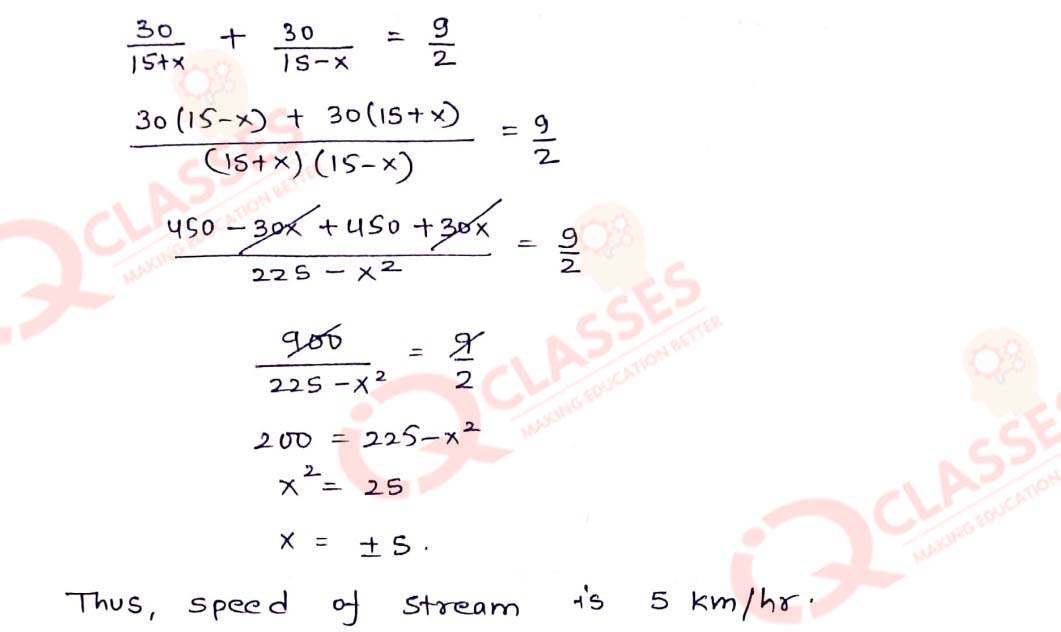 30/15+x + 30/15-x = 9/2
30(15-x) + 30(15+x) / (15+x)(15-x) = 9/2
450 - 30x + 450 + 30x / 225 - x² = 9/2
900/225-x² = 9/2
200 = 225-x²
x² = 25
x = ±5.
Thus, speed of stream is 5 km/hr.
CLASSES
MAKING EDUCATION BETTER
iQ CLASSES
MAKING EDUCATION BETTER
iQ CLASSES
MAKING EDUCATION